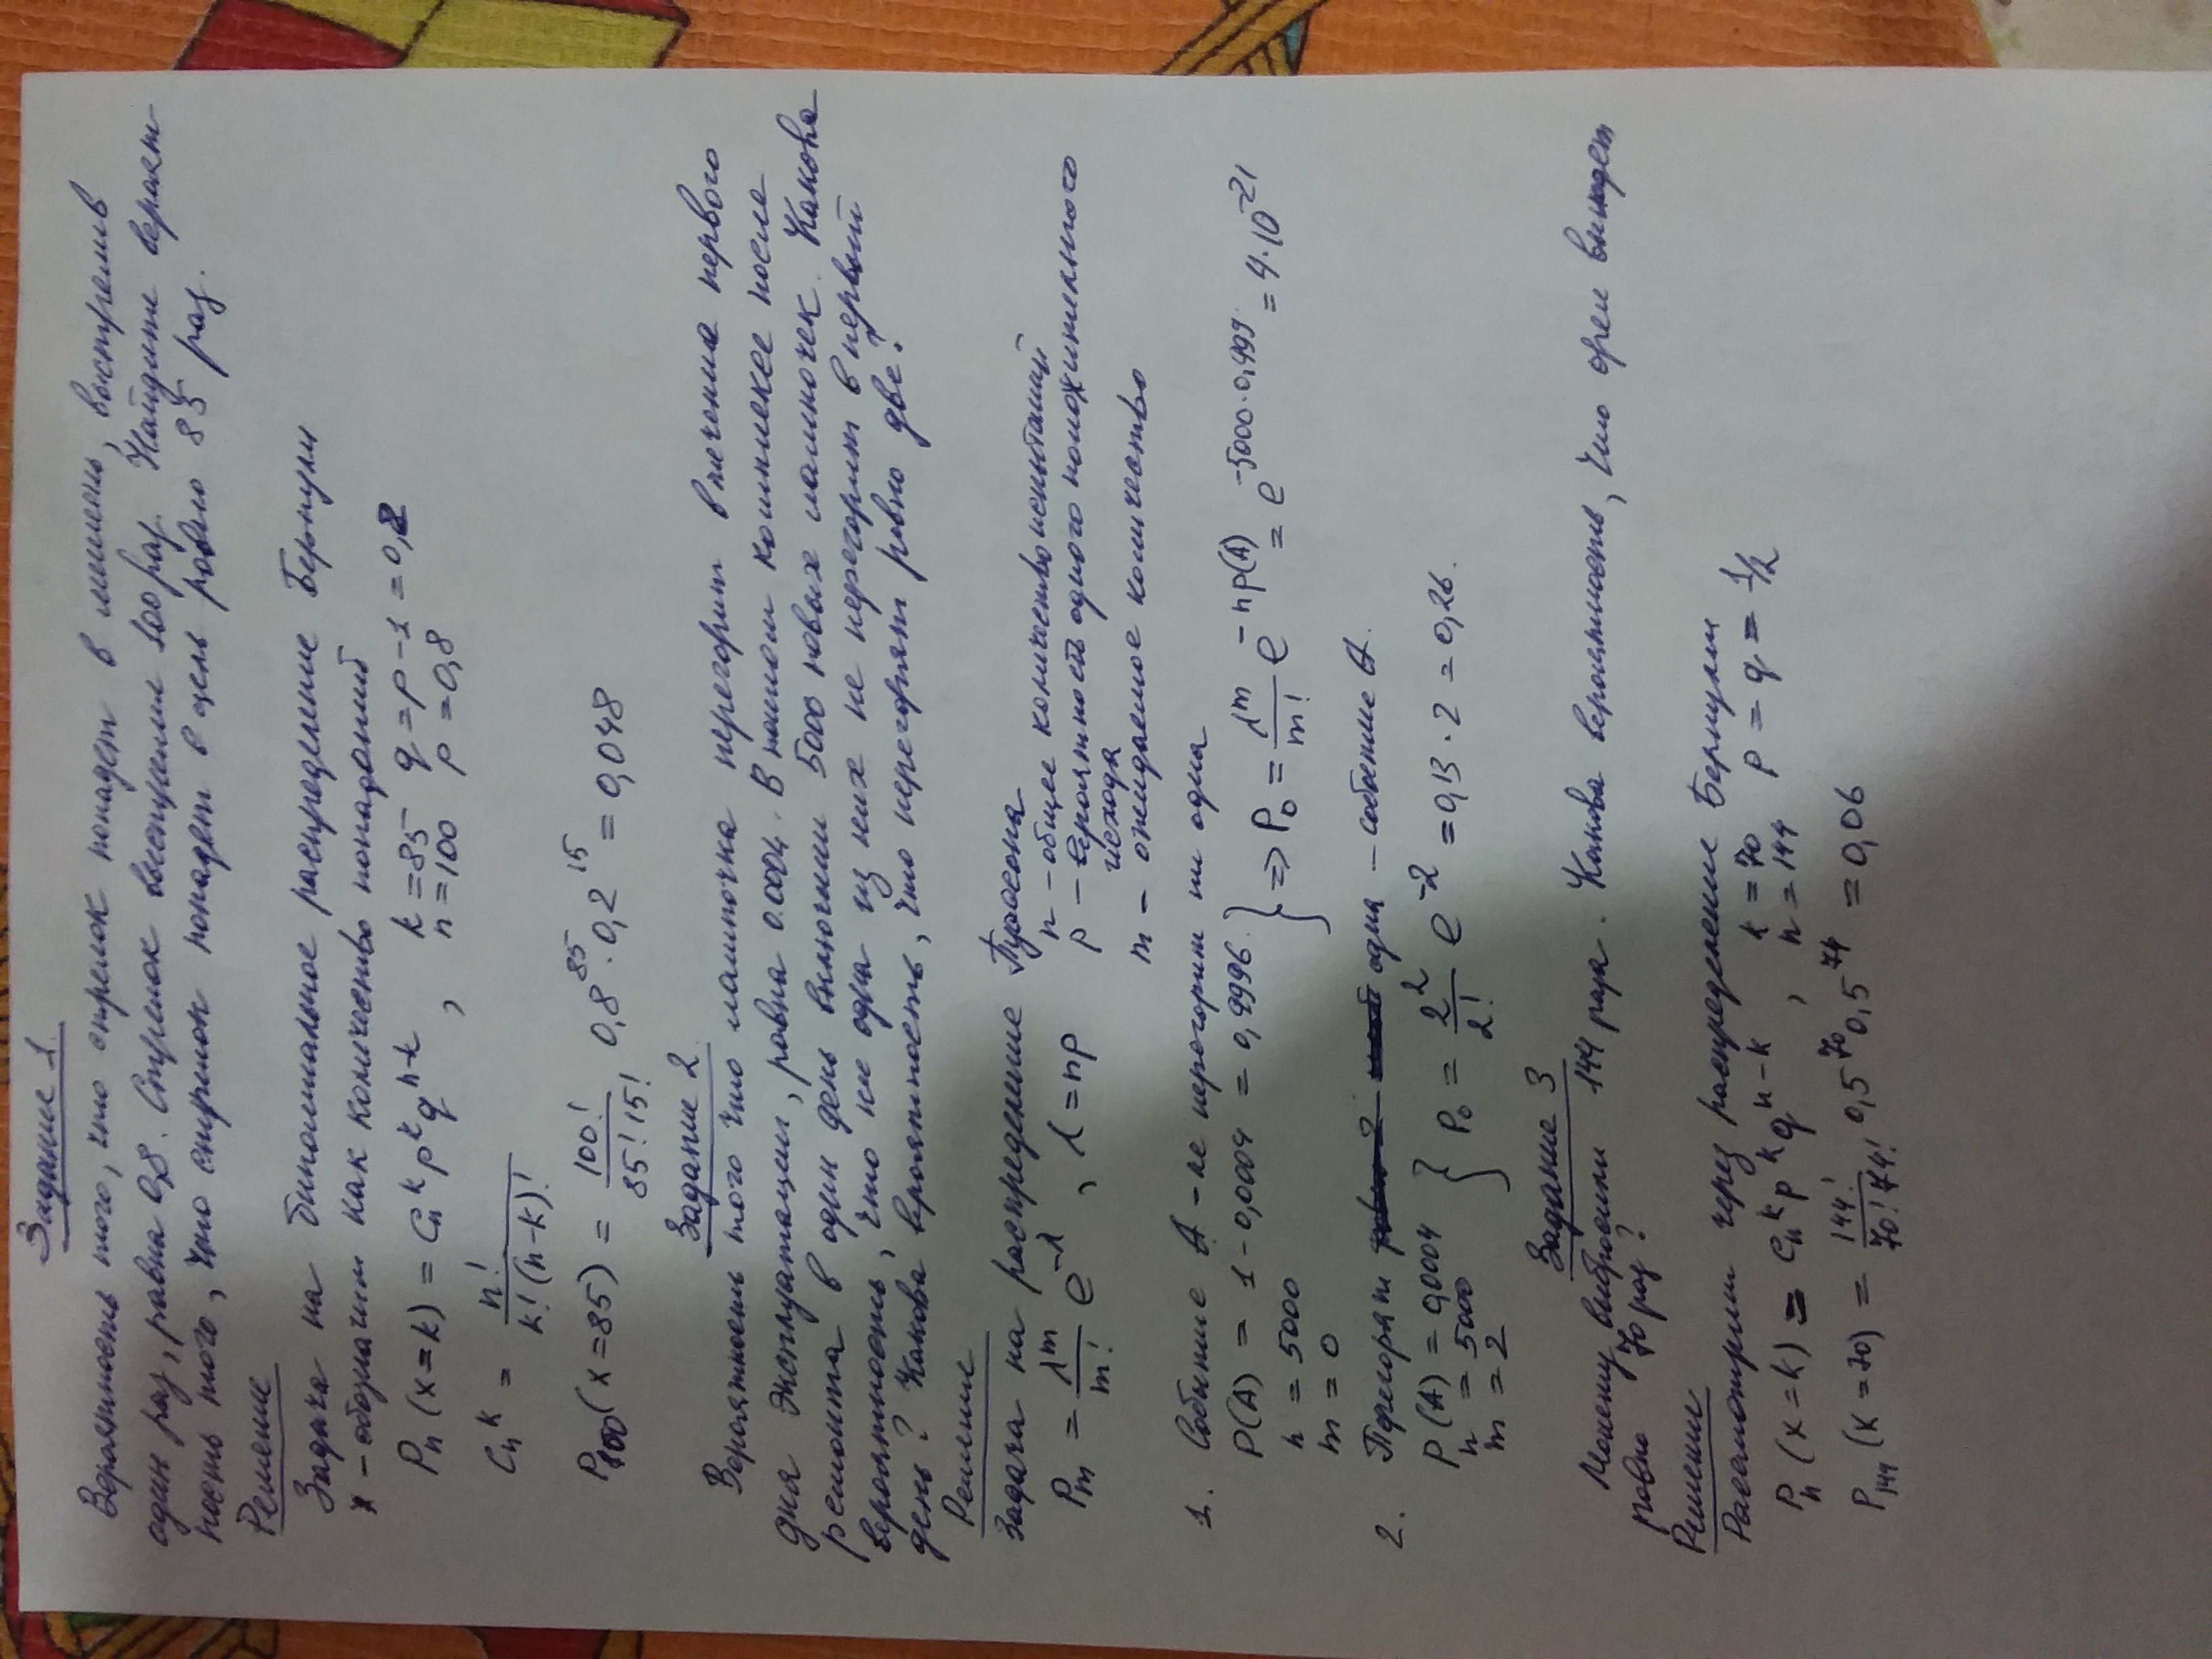 Задание 1.
Вероятность того, что стрелок попадет в мишень, выстрелив
один раз, равна 0,8. Стрелок выстрелил 100 раз. Найдите вероят-
ность того, что стрелок попадет в цель ровно 85 раз.
Решение
Задача на биномиальное распределение Бернули
x - обозначим как количество попаданий
Pn (x=k) = Cn^k p^k q^n-k , k=85 q=p-1=0,2
n=100 p=0,8
Cn^k = n! / k!(n-k)!
P100 (x=85) = 100! / 85! 15! 0,8^85 · 0,2^15 = 0,048
Задание 2
Вероятность того что лампочка перегорит в течение первого
дня эксплуатации, равна 0.0004. В нашем комплексе после
ремонта в один день включили 5000 новых лампочек. Какова
вероятность, что ни одна из них не перегорит в первый
день? Какова вероятность, что перегорят ровно две?
Решение
Задача на распределение Пуассона
Pm = λ^m / m! e^-λ , λ=np
n - общее количество испытаний
p - вероятность одного положительного
исхода
m - ожидаемое количество
1. Событие A - не перегорит ни одна
P(A) = 1-0,0004 = 0,9996.
n = 5000
m = 0
} => P0 = λ^m / m! e^-np(A) = e^-5000·0,999. = 4·10^-21
2. Перегорят одна - событие A.
P(A) = 0,0004
n = 5000
m = 2
} P0 = 2^2 / 2! e^-2 = 0,13 · 2 = 0,26.
Задание 3
Монету выбросили 144 раза. Какова вероятность, что орел выпадет
ровно 70 раз?
Решение
Рассмотрим через распределение Бернули
Pn (x=k) = Cn^k p^k q^n-k , k=70
n=144 p = q = 1/2
P144 (x=70) = 144! / 70! 74! 0,5^70 0,5^74 = 0,06